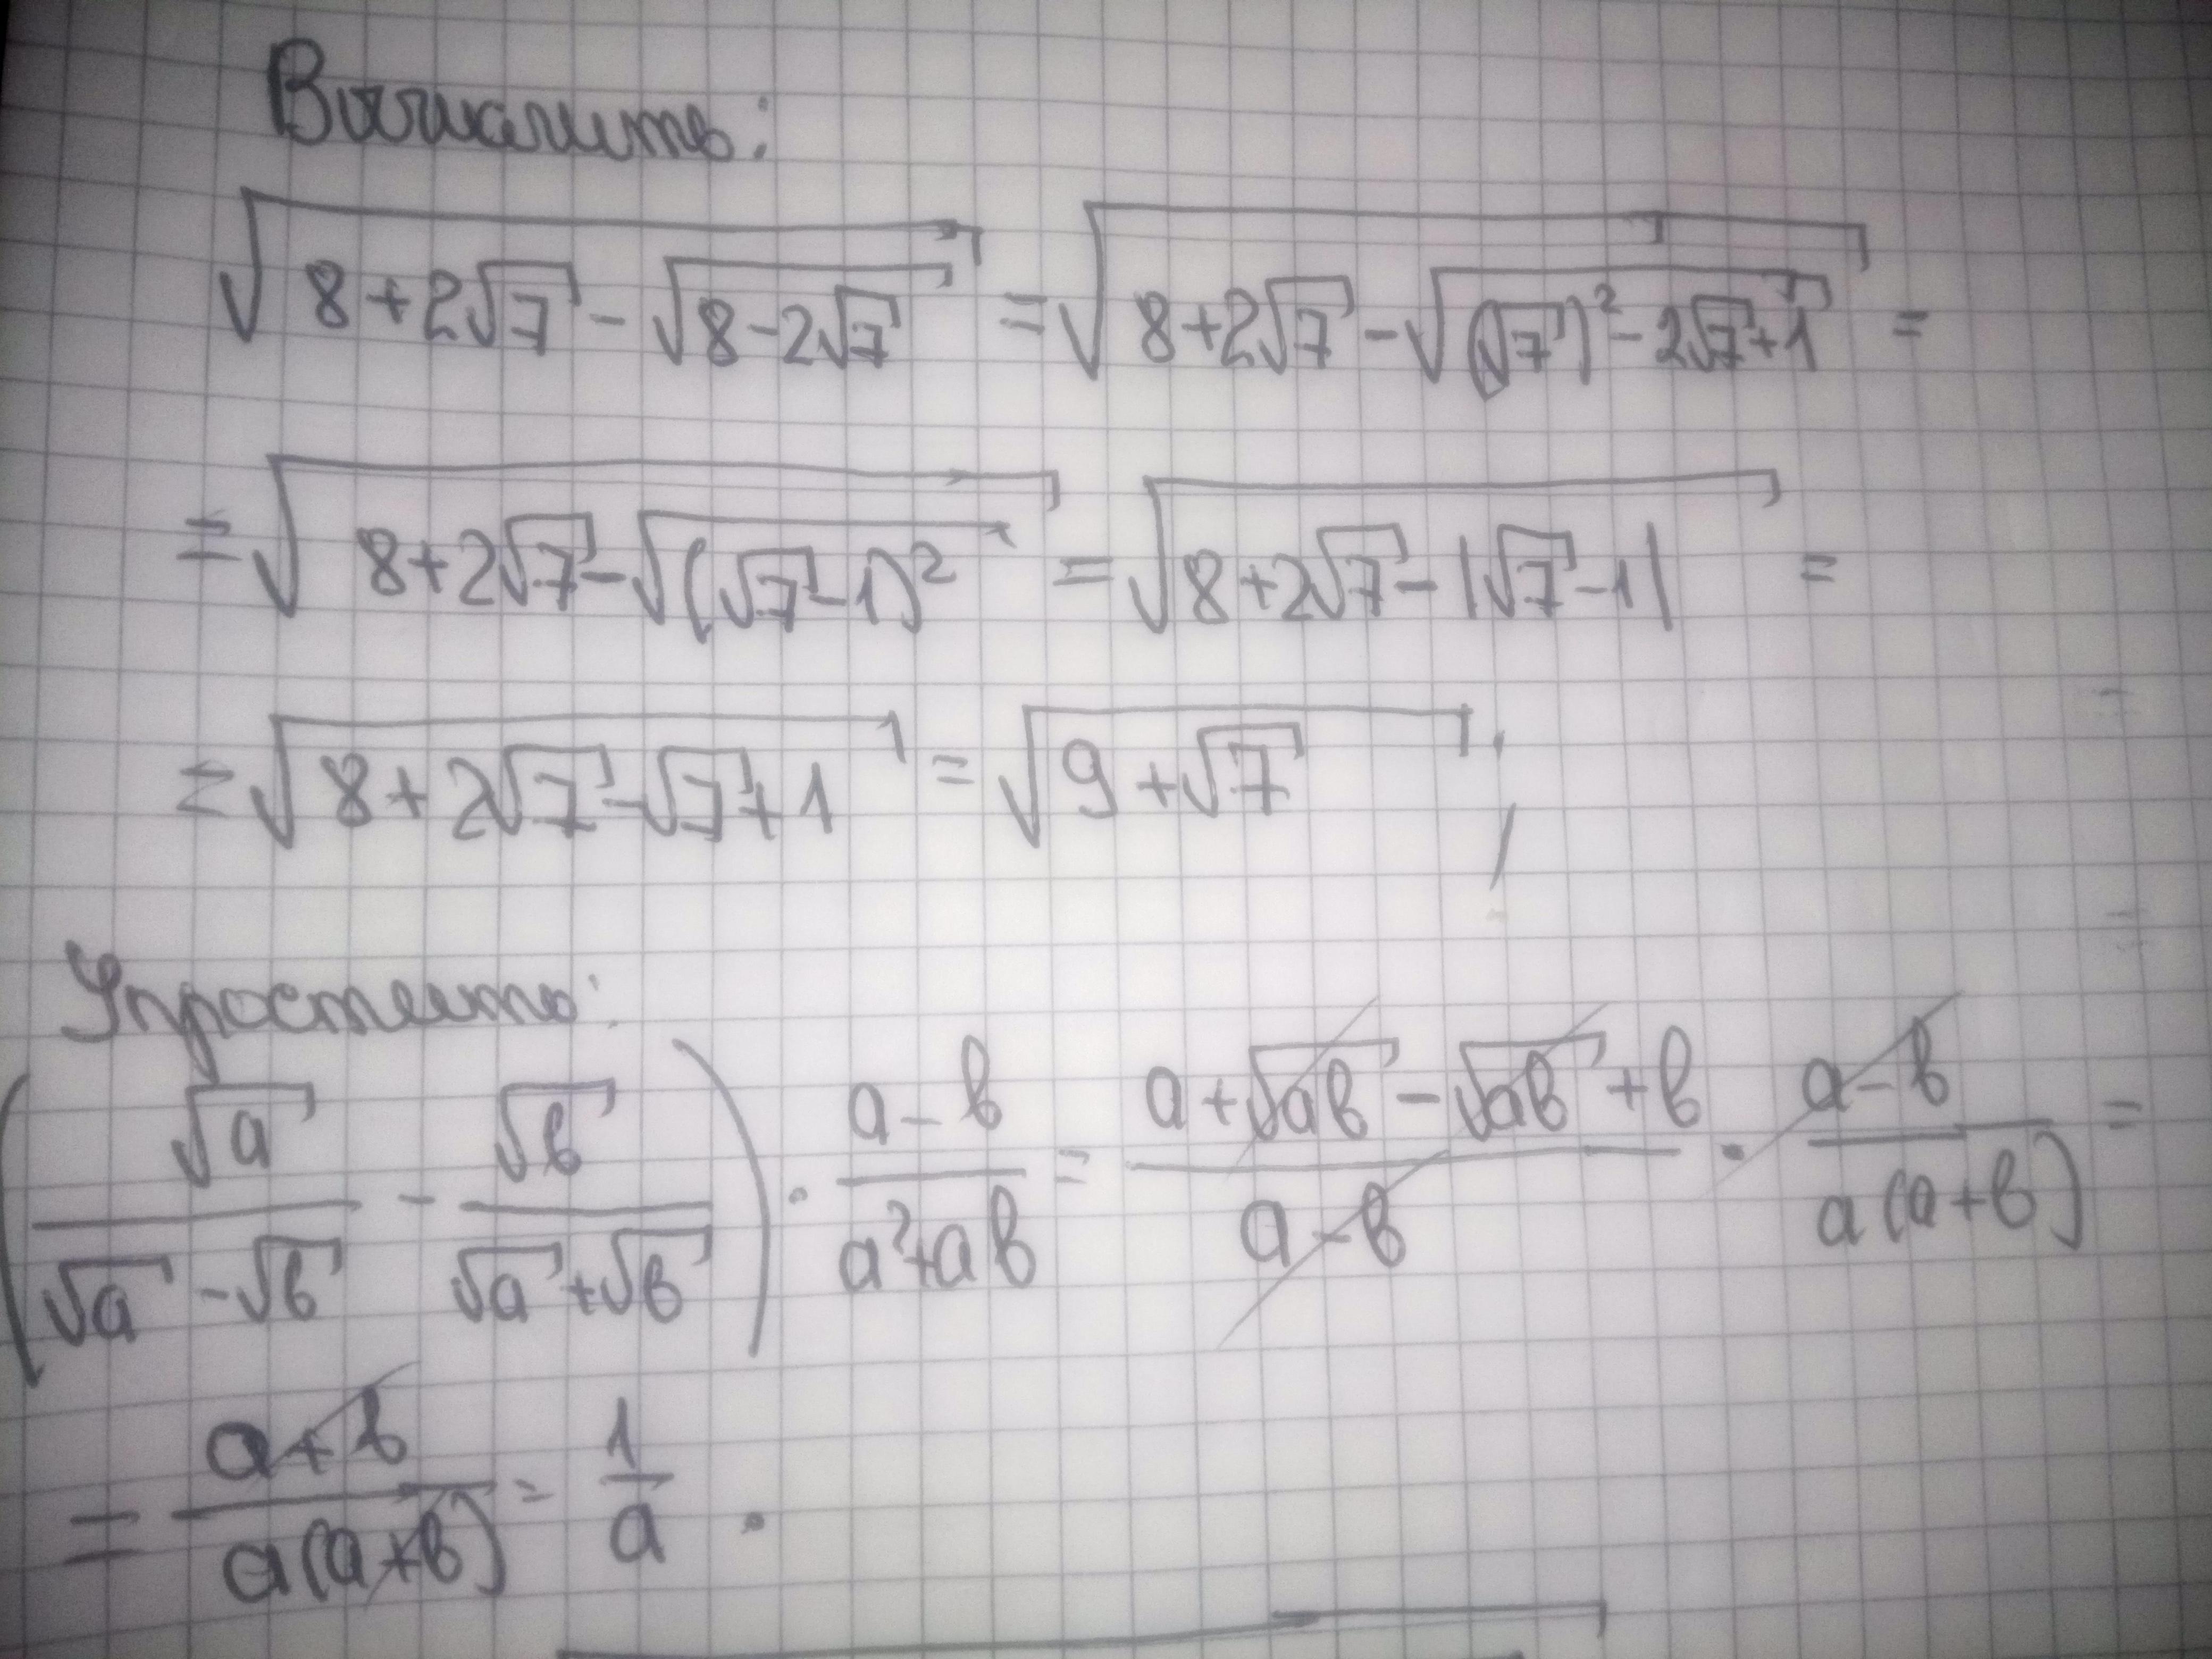 Вычислить:
√(8+2√7-√(8-2√7)) = √(8+2√7-√((√7)²-2√7+1)) =
= √(8+2√7-√((√7-1)²)) = √(8+2√7-|√7-1|) =
= √(8+2√7-√7+1) = √(9+√7);
Упростить:
(√a/(√a-√b) - √b/(√a+√b)) · (a-b)/(a²+ab) = (a+√ab-√ab+b)/(a-b) · (a-b)/(a(a+b)) =
= (a+b)/(a(a+b)) = 1/a.